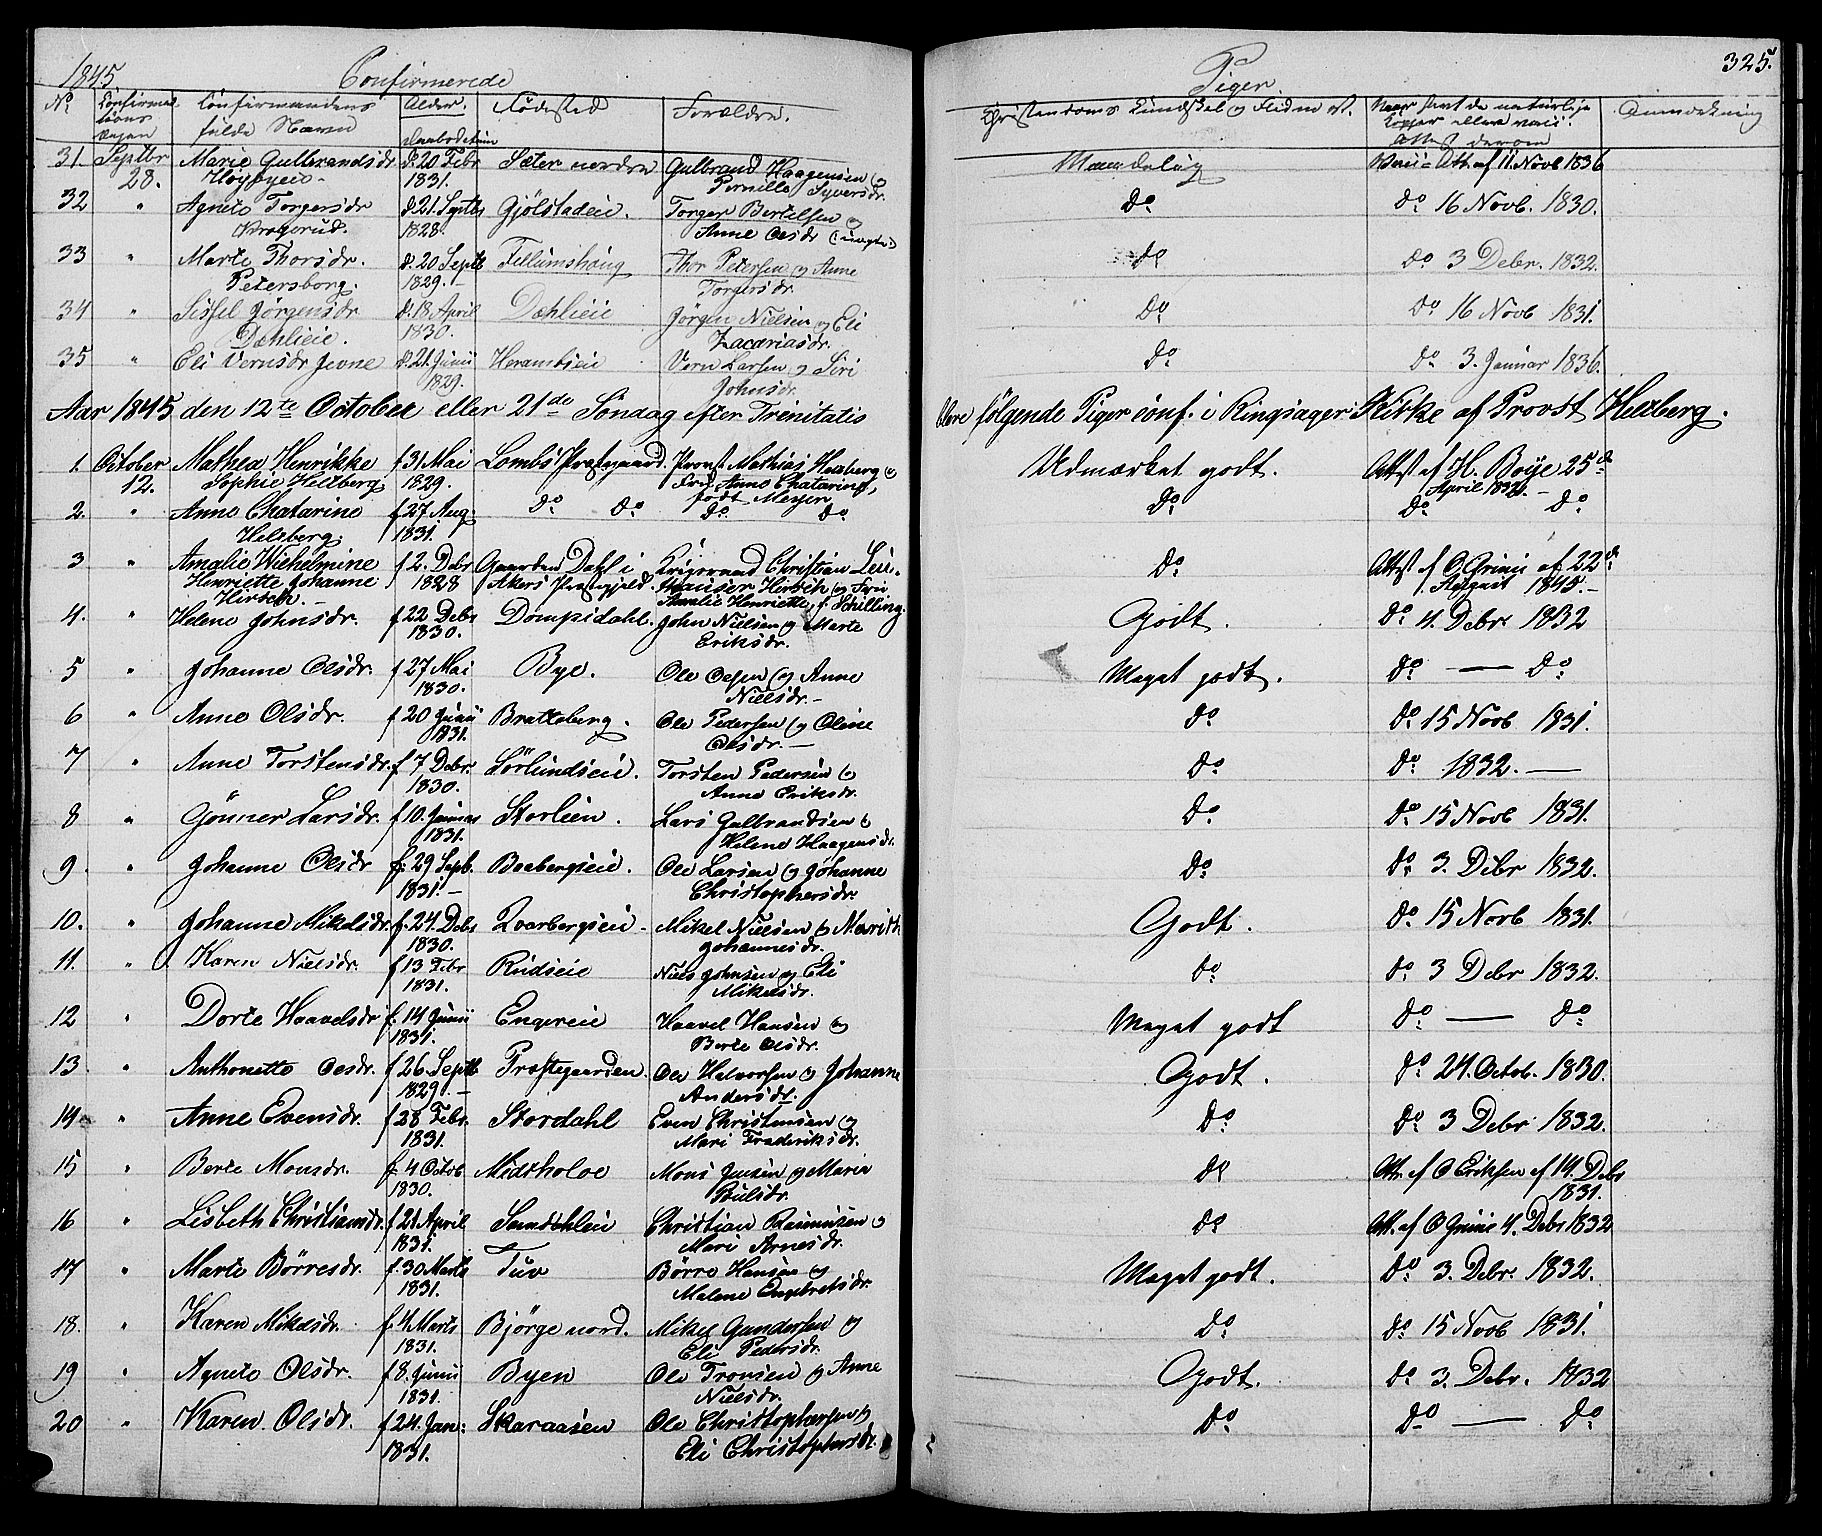 1845 Confirmerede Piger. 325.
No. Confirmations Dagen Confirmandens fulde Navn Alder. Daabsdatum Fødested Forældre. Christendoms Kundskab og Flid m. v. Naar havt de naturlige Kopper eller vacc. Att. derom Anmærkning
31. Septbr 28. Marie Gulbrandsdr Høybyeie d. 20 Febr 1831. Sæter nordre Gulbrand Haagensen og Pernille Syversdr. Maadelig Vacc. Att. af 11. Novb 1836
32 " Agnete Torgersdr Kragerud. d. 21. Septbr 1828. Gjölstadeie. Torger Bertelsen og Anne Olsdr (: ugifte) Do Do 16 Novb. 1830.
33 " Marte Thorsdr. Petersborg. d. 20 Septb 1829. Fellumshoug Thor Petersen og Anne Torgersdr. Do Do 3 Debr. 1832.
34 " Sissel Jörgensdr Dæhlieie. d. 18. April 1830. Dæhlieie Jörgen Nielsen og Eli Zacariasdr. Do Do 16 Novb 1831.
35 " Eli Vernsdr Jevne d. 21. Junii 1829. Herambseie Vern Larsen og Siri Johnsdr. Do Do 3. Januar 1836.
Aar 1845 den 12te October eller 21de Söndag efter Trinitatis bleve følgende Piger conf. i Ringsager Kirke af Provst Heltzberg.
1. October 12. Mathea Henrikke Sophie Heltzberg f 31 Mai 1829. Lombs Præstegaard. Provst Mathias Heltzberg og Fru Anne Chatarine, født Meyer Udmærket godt. Attst af H. Boye 25de April 1832.
2. " Anne Chatarine Heltzberg f 27 Aug. 1831. Do Do Do Do Do Do Do
3 " Amalie Wilhelmine Henriette Johanne Hirsch. f 2. Debr 1828 Gaarden Dahl i Akers Præstegjeld. Krigsraad Christian Leuthauser Hirsch og Fru Amalie Henriette f. Schilling. Do Attst af O Grini af 22de August 1845.
4. " Helene Johnsdr. f 22 Debr 1830. Dompidahl. John Nielsen og Marte Eriksdr. Godt. Do 4. Debr 1832
5 " Johanne Olsdr. f 27 Mai 1830. Bye. Ole Olsen og Anne Nielsdr. Meget godt. Do — Do
6 " Anne Olsdr. f 20 Junii 1831. Bratteberg. Ole Pedersen og Oline Olsdr. Do Do 15 Novb 1831.
7 " Anne Torstensdr. f 7 Debr. 1830. Sörlundseie. Torsten Pedersen og Anne Eriksdr. Do Do 1832.
8 " Gönner Larsdr. f 10. Januar 1831. Storlien. Lars Gulbrandsen og Helene Haagensdr. Do Do 15 Novb 1831.
9. " Johanne Olsdr f. 29 Septb. 1831. Boebergseie. Ole Larsen og Johanne Christophersdr. Do Do 3. Debr 1832.
10. " Johanne Mikelsdr. f. 24. Debr 1830. Kvarbergseie Mikel Nielsen og Marith Johannesdr. Godt. Do 15 Novb 1831.
11. " Karen Nielsdr. f 13 Febr 1831. Rudseie Niels Johnsen og Eli Mikelsdr. Do Do 3 Debr 1832.
12 " Dorte Haavelsdr f. 14 Junii 1831. Engereie Haavel Hansen og Berte Olsdr. Meget godt Do — Do
13. " Anthonette Olsdr. f 26. Septb 1829. Præstegaarden. Ole Halvorsen og Johanne Andersdr. Godt. Do 24. Octob. 1830.
14 " Anne Evensdr. f 28 Febr. 1831. Stordahl Even Christensen og Mari Frederiksdr. Do Do 3 Debr 1832.
15 " Berte Monsdr. f. 4 Octob 1830. Midtskoloe Mons Jensen og Maria Poulsdr. Do Att. af O Eriksen af 14. Debr 1831.
16 " Lisbeth Christiansdr. f 21 April 1831. Sandehleie Christian Rasmusen og Mari Arnesdr. Do Att. af O Grinie 4. Debr 1832
17 " Marte Börresdr. f. 30 Marts 1831. Tuv Börre Hansen og Malene Engebretsdr. Meget godt. Do 3. Debr. 1832.
18. " Karen Mikelsdr. f. 4 Marts 1831. Bjørge nord. Mikel Gundersen og Eli Pedersdr. Do Do 15 Novb 1831.
19 " Agnete Olsdr. f 8. Junii 1831. Byen Ole Tronsen og Anne Nielsdr. Godt. Do 3. Debr. 1832
20 " Karen Olsdr. f 24. Jan: 1831. Skaraasen Ole Christophersen og Eli Christophersdr. Do Do — Do